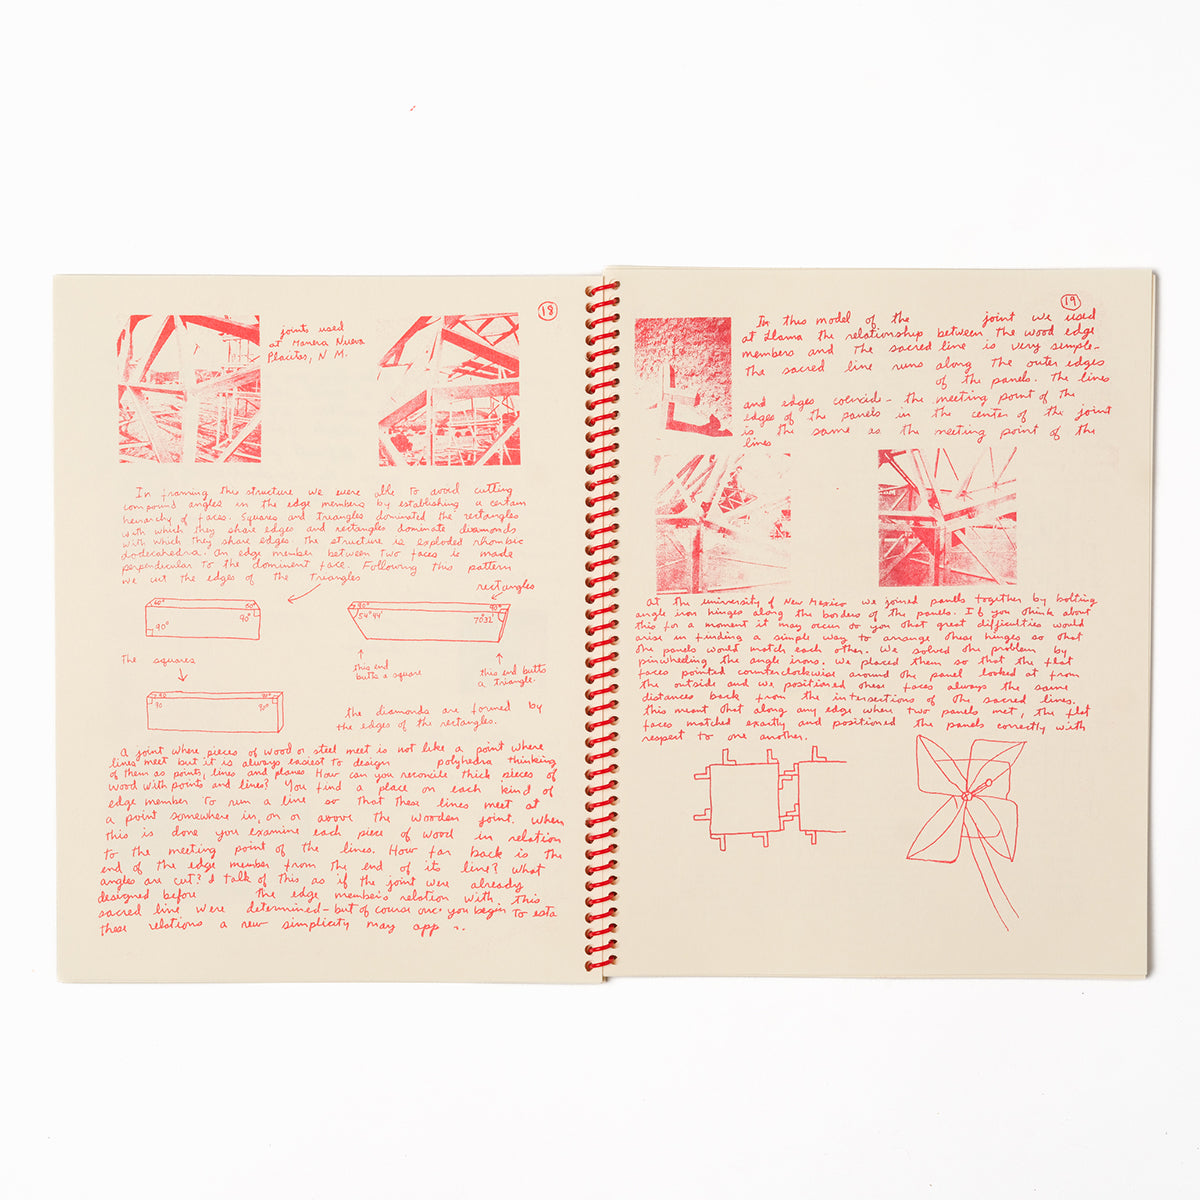 18
joints used
at Manera Nueva
Placitas, N M.
In framing this structure we were able to avoid cutting
compound angles in the edge members by establishing a certain
heirarchy of faces. Squares and triangles dominated the rectangles
with which they share edges and rectangles dominate diamonds
with which they share edges. the structure is exploded rhombic
dodecahedra. An edge member between two faces is made
perpendicular to the dominent face. Following this pattern
we cut the edges of the triangles
rectangles
60° 60°
90°
90°
90° 90°
54°44' 70°32'
the squares
this end
butts a square
this end butts
a triangle.
90 90°
90 90°
the diamonds are formed by
the edges of the rectangles.
A joint where pieces of wood or steel meet is not like a point where
lines meet but it is always easiest to design polyhedra thinking
of them as points, lines and planes. How can you reconcile thick pieces of
wood with points and lines? You find a place on each kind of
edge member to run a line so that these lines meet at
a point somewhere in, on or above the wooden joint. When
this is done you examine each piece of wood in relation
to the meeting point of the lines. How far back is the
end of the edge member from the end of its line? What
angles are cut? I talk of this as if the joint were already
designed before the edge member's relation with this
sacred line were determined - but of course once you begin to esta
these relations a new simplicity may app
19
In this model of the joint we used
at Llama the relationship between the wood edge
members and the sacred line is very simple-
the sacred line runs along the outer edges
of the panels. The lines
and edges coincid- the meeting point of the
edges of the panels in the center of the joint
is the same as the meeting point of the
lines
At the university of New Mexico we joined panels together by bolting
angle iron hinges along the borders of the panels. If you think about
this for a moment it may occur to you that great difficulties would
arise in finding a simple way to arrange these hinges so that
the panels would match each other. We solved the problem by
pinwheeling the angle irons. We placed them so that the flat
faces pointed counterclockwise around the panel looked at from
the outside and we positioned these faces always the same
distances back from the intersections of the sacred lines.
this meant that along any edge where two panels met, the flat
faces matched exactly and positioned the panels correctly with
respect to one another.